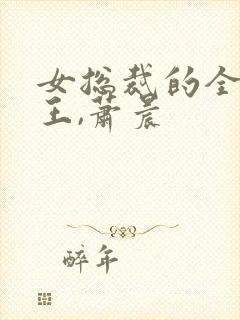 女总裁的全
王,萧晨
醉年